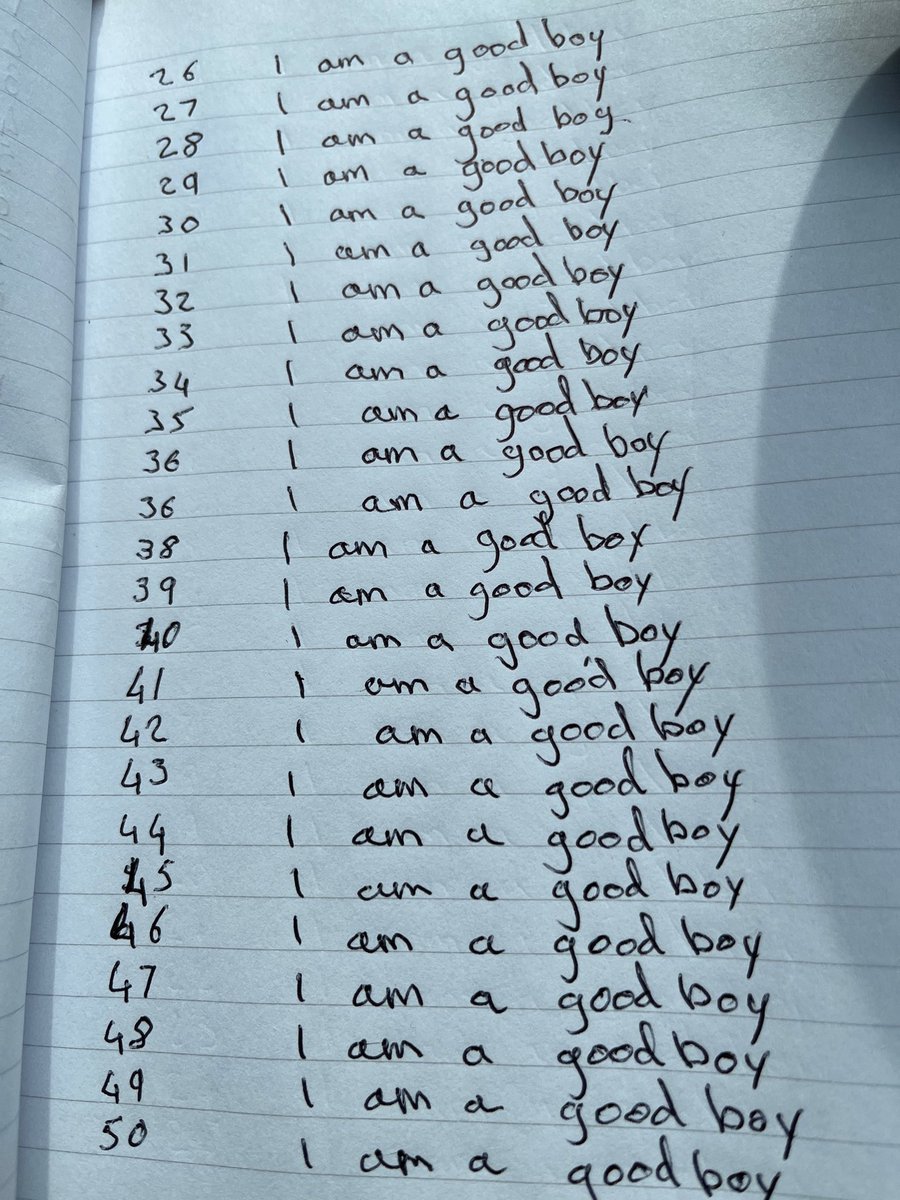 26 I am a good boy
27 I am a good boy
28 I am a good boy.
29 I am a good boy
30 I am a good boy
31 I am a good boy
32 I am a good boy
33 I am a good boy
34 I am a good boy
35 I am a good boy
36 I am a good boy
36 I am a good boy
38 I am a good boy
39 I am a good boy
40 I am a good boy
41 I am a good boy
42 I am a good boy
43 I am a good boy
44 I am a good boy
45 I am a good boy
46 I am a good boy
47 I am a good boy
48 I am a good boy
49 I am a good boy
50 I am a good boy